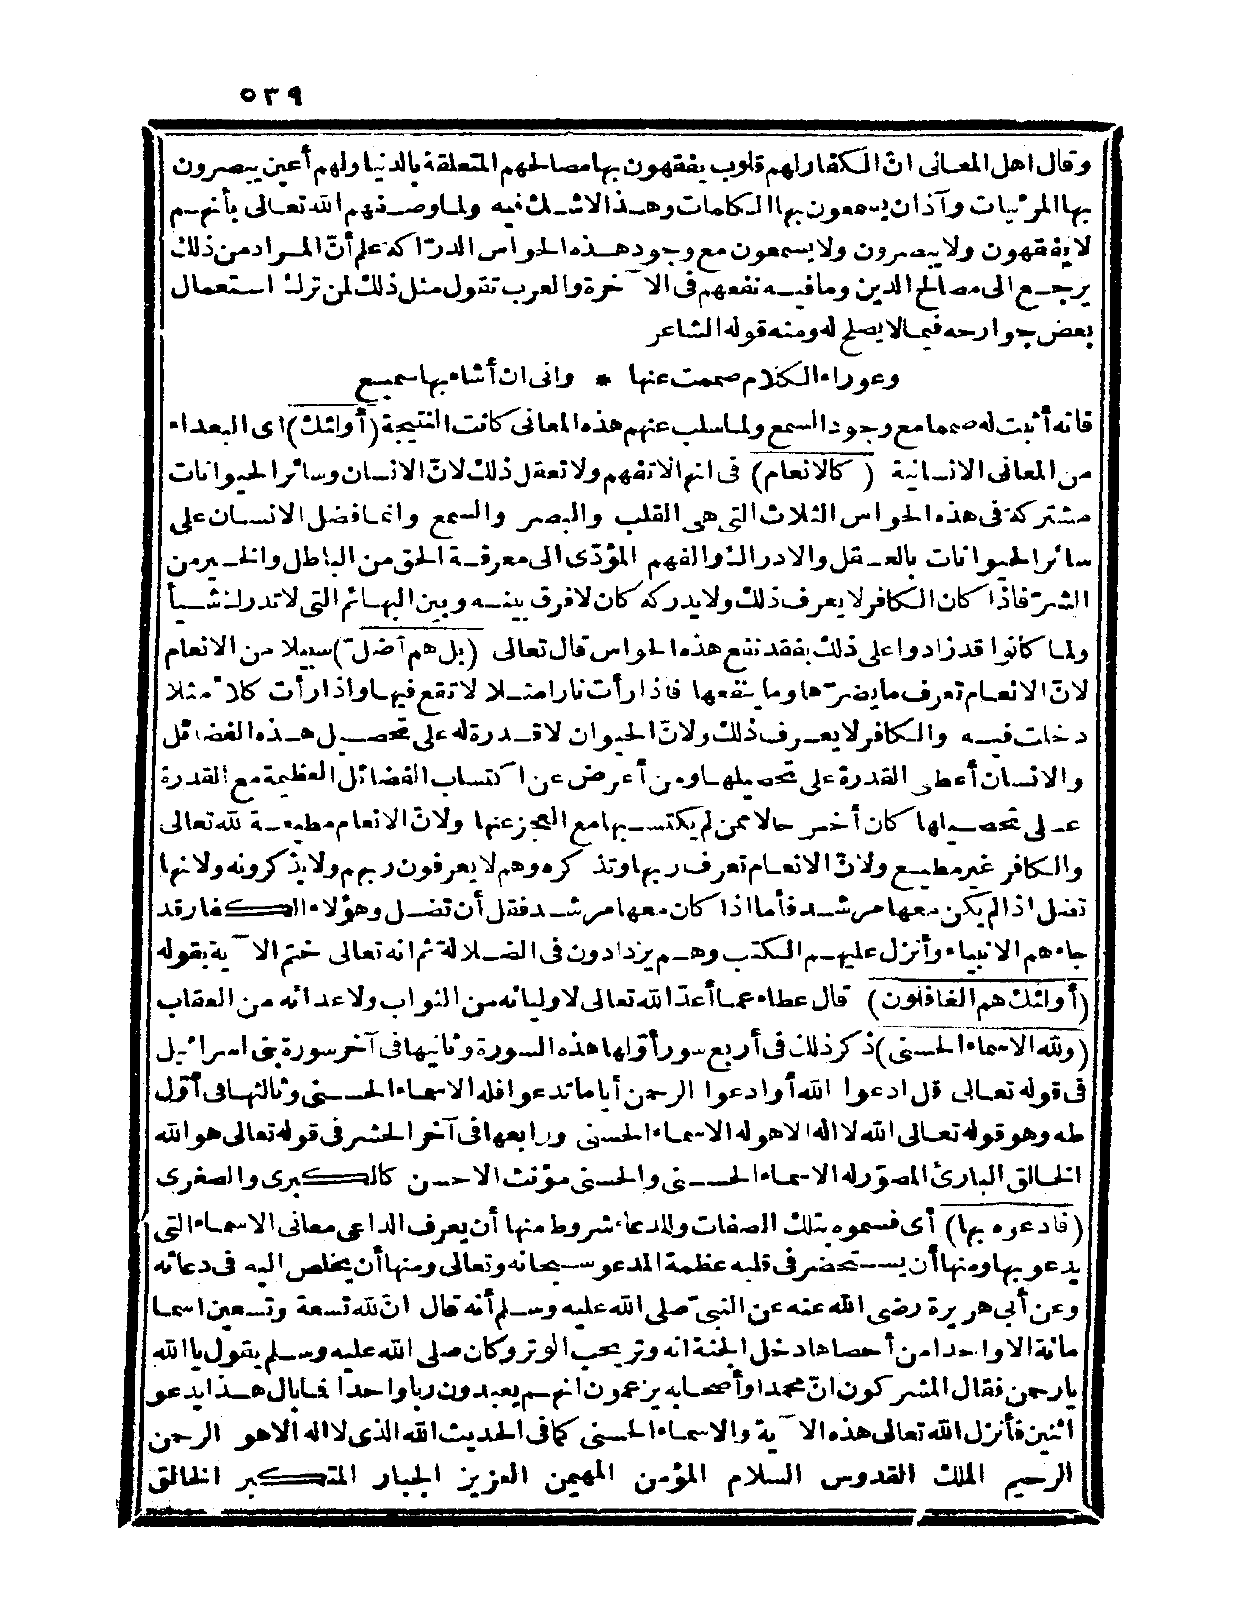 ٥٣٩
وقال اهل المعانى انّ الكفار لهم قلوب يفقهون بها مصالحهم المتعلقة بالدنيا ولهم أعين يبصرون
بها المرئيات وآذان يسمعون بها الكلمات وهذا لاشك فيه ولما وصفهم الله تعالى بأنهم
لا يفقهون ولا يبصرون ولا يسمعون مع وجود هذه الحواس الدرّاكة علم أنّ المراد من ذلك
يرجع الى مصالح الدين وما فيه نفعهم فى الآخرة والعرب تقول مثل ذلك لمن ترك استعمال
بعض جوارحه فيما لا يصلح له ومنه قوله الشاعر
وعوراء الكلام صممت عنها * وانى ان أشاء بها سميع
فانه أثبت له صمما مع وجود السمع ولما سلب عنهم هذه المعانى كانت النتيجة (أولئك) اى البعداء
من المعانى الانسانية (كالانعام) فى انها لا تفهم ولا تعقل ذلك لانّ الانسان وسائر الحيوانات
مشتركة فى هذه الحواس الثلاث التى هى القلب والبصر والسمع وانما فضل الانسان على
سائر الحيوانات بالعقل والادراك والفهم المؤدّى الى معرفة الحق من الباطل والخير من
الشرّ فاذا كان الكافر لا يعرف ذلك ولا يدركه كان لا فرق بينه وبين البهائم التى لا تدرك شيأ
ولما كانوا قد زادوا على ذلك بفقد نفع هذه الحواس قال تعالى (بل هم أضلّ) سبيلا من الانعام
لانّ الانعام تعرف ما يضرّها وما ينفعها فاذا رأت نارا مثلا لا تقع فيها واذا رأت كلأ مثلا
دخلت فيه والكافر لا يعرف ذلك ولانّ الحيوان لا قدرة له على تحصيل هذه الفضائل
والانسان أعطى القدرة على تحصيلها ومن أعرض عن اكتساب الفضائل العظيمة مع القدرة
على تحصيلها كان أخس حالا ممن لم يكتسبها مع العجز عنها ولانّ الانعام مطيعة لله تعالى
والكافر غير مطيع ولانّ الانعام تعرف ربها وتذكره وهم لا يعرفون ربهم ولا يذكرونه ولانها
تضل اذا لم يكن معها مرشد فأما اذا كان معها مرشد فقل أن تضل وهؤلاء الكفار قد
جاءهم الانبياء وأنزل عليهم الكتب وهم يزدادون فى الضلالة ثم انه تعالى ختم الآية بقوله
(أولئك هم الغافلون) قال عطاء عما أعدّ الله تعالى لاوليائه من الثواب ولاعدائه من العقاب
(ولله الاسماء الحسنى) ذكر ذلك فى أربع سور أولها هذه السورة وثانيها فى آخر سورة بنى اسرائيل
فى قوله تعالى قل ادعوا الله أو ادعوا الرحمن أياما تدعوا فله الاسماء الحسنى وثالثها فى أوّل
طه وهو قوله تعالى الله لا اله الا هو له الاسماء الحسنى ورابعها فى آخر الحشر فى قوله تعالى هو الله
الخالق البارئ المصوّر له الاسماء الحسنى والحسنى مؤنث الاحسن كالكبرى والصغرى
(فادعوه بها) أى فسموه بتلك الصفات وللدعاء شروط منها أن يعرف الداعى معانى الاسماء التى
يدعو بها ومنها أن يستحضر فى قلبه عظمة المدعو سبحانه وتعالى ومنها أن يخلص اليه فى دعائه
وعن أبى هريرة رضى الله عنه عن النبىّ صلى الله عليه وسلم أنه قال انّ لله تسعة وتسعين اسما
مائة الا واحدا من أحصاها دخل الجنة انه وتر يحب الوتر وكان صلى الله عليه وسلم يقول يا الله
يا رحمن فقال المشركون انّ محمدا وأصحابه يزعمون انهم يعبدون ربا واحدا فما بال هذا يدعو
اثنين فأنزل الله تعالى هذه الآية والاسماء الحسنى كما فى الحديث الله الذى لا اله الا هو الرحمن
الرحيم الملك القدوس السلام المؤمن المهيمن العزيز الجبار المتكبر الخالق